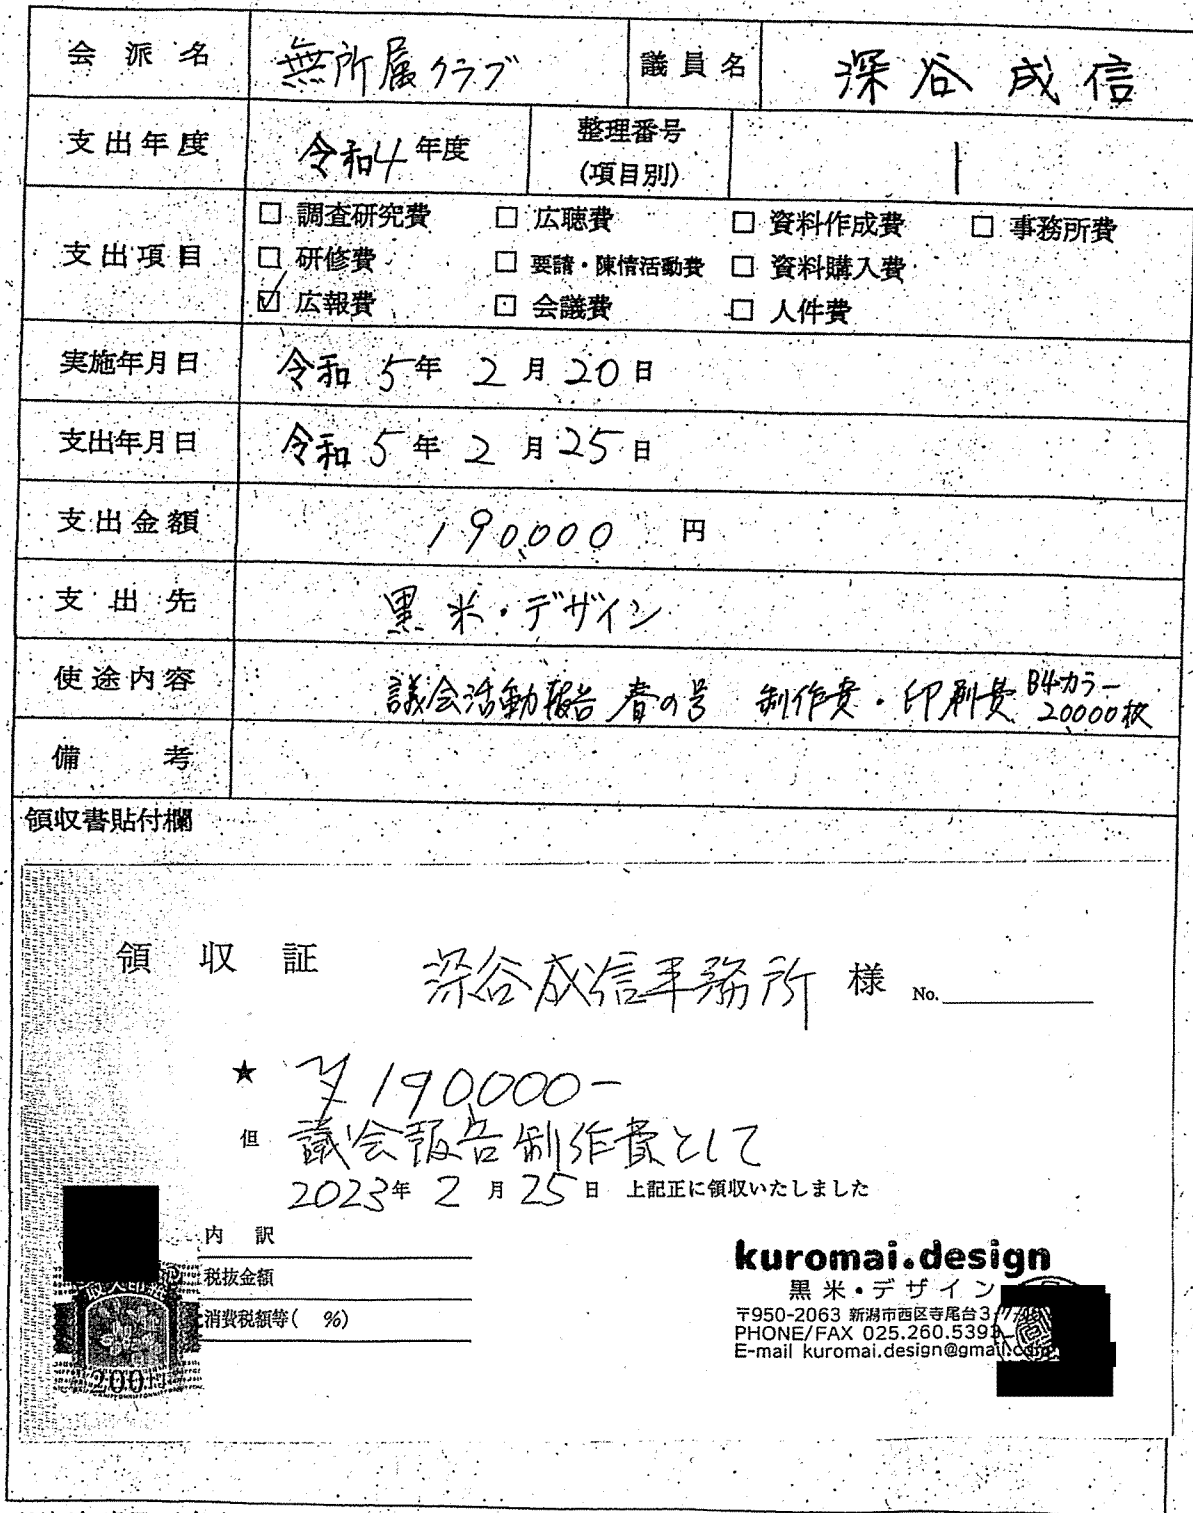 会派名 無所属クラブ 議員名 深谷成信
支出年度 令和4年度 整理番号(項目別) 1
支出項目
□ 調査研究費 □ 広聴費 □ 資料作成費 □ 事務所費
□ 研修費 □ 要請・陳情活動費 □ 資料購入費
☑ 広報費 □ 会議費 □ 人件費
実施年月日 令和5年2月20日
支出年月日 令和5年2月25日
支出金額 190,000円
支出先 黒米・デザイン
使途内容 議会活動報告 春の号 制作費・印刷費 B4カラー 20,000枚
備考
領収書貼付欄
領収証 深谷成信事務所 様 No.
★ ¥190,000-
但 議会報告制作費として
2023年2月25日 上記正に領収いたしました
内訳
税抜金額
消費税額等( %)
200円
kuromai.design
黒米・デザイン
〒950-2063 新潟市西区寺尾台3-
PHONE/FAX 025.260.539
E-mail kuromai.design@gmail.com